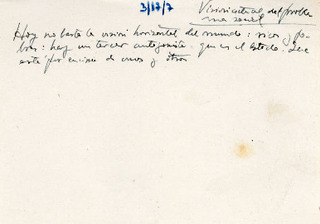 3/17/7
Vision actual del proble
ma social
Hoy no basta la visión horizontal del mundo: ricos y po-
bres: hay un tercer antagonista que es el estado. Que
está por encima de unos y otros